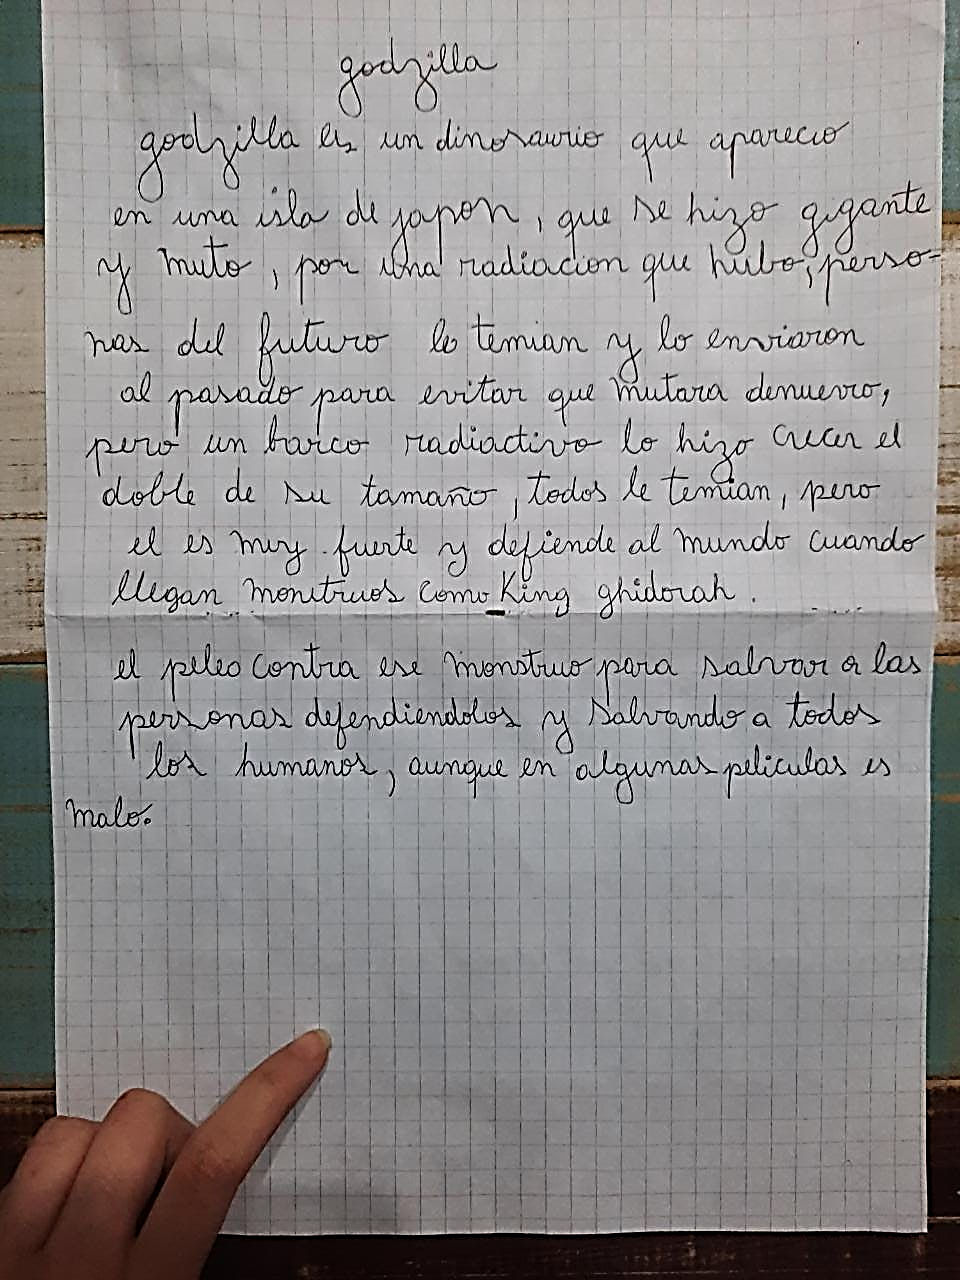 godzilla
godzilla es un dinosaurio que aparecio
en una isla de japon, que se hizo gigante
y muto, por una radiacion que hubo, perso-
nas del futuro le temian y lo enviaron
al pasado para evitar que mutara denuevo,
pero un barco radiactivo lo hizo crecer el
doble de su tamaño, todos le temian, pero
el es muy fuerte y defiende al mundo cuando
llegan monstruos como King ghidorah.
el peleo contra ese monstruo para salvar a las
personas defendiendolos y salvando a todos
los humanos, aunque en algunas peliculas es
malo.